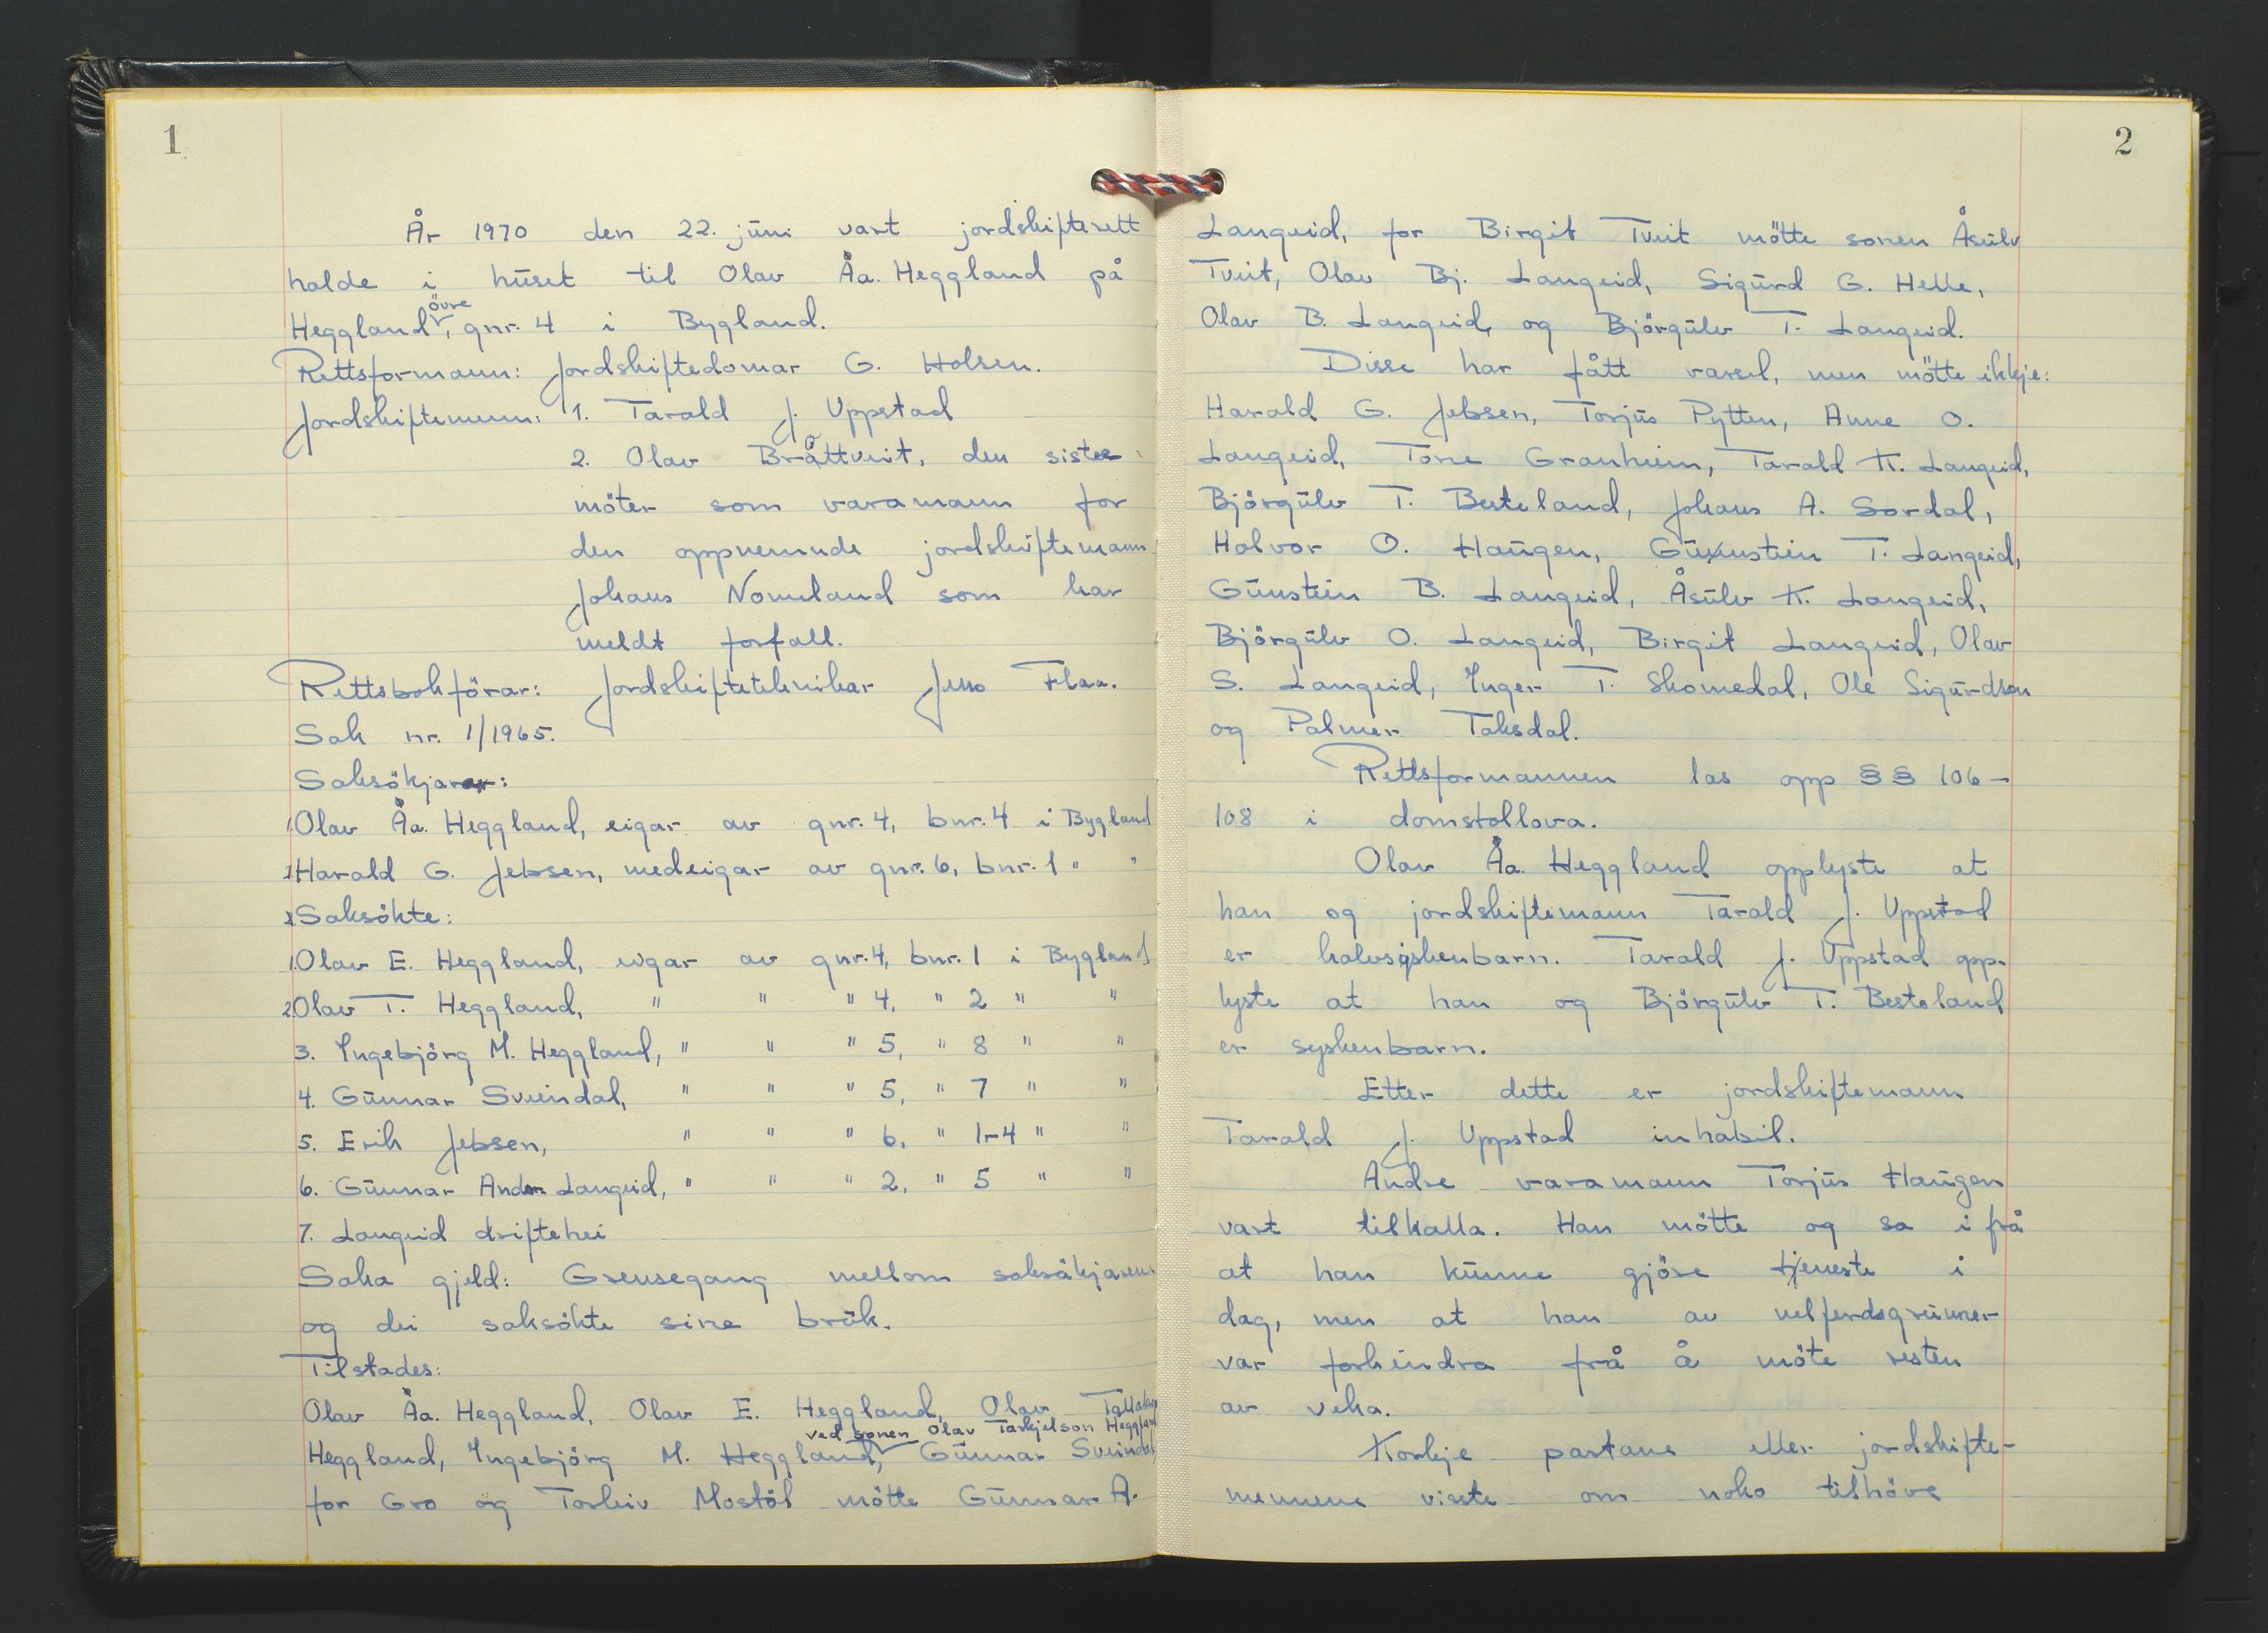 1
År 1970 den 22. juni vart jordskifterett
halde i huset til Olav Åa. Heggland på
Heggland øvre, gnr. 4 i Bygland.
Rettsformann: Jordskiftedomar G. Holsen.
Jordskiftemenn: 1. Tarald J. Uppstad
2. Olav Bråttveit, den siste
möter som varamann for
den oppnemnde jordskiftemann
Johans Nomeland som har
meldt forfall.
Rettsbokförar: Jordskifteteknikar Jens Flaa.
Sak nr. 1/1965.
Saksökjarar:
1. Olav Åa. Heggland, eigar av gnr. 4, bnr. 4 i Bygland
Harald G. Jebsen, medeigar av gnr. 6, bnr. 1 " "
Saksökte:
1. Olav E. Heggland, eigar av gnr. 4, bnr. 1 i Bygland
2. Olav T. Heggland, " " " 4, " 2 " "
3. Ingebjörg M. Heggland, " " " 5, " 8 " "
4. Gunnar Sveindal, " " " 5, " 7 " "
5. Erik Jebsen, " " " 6, " 1-4 " "
6. Gunnar Anders Langeid, " " " 2, " 5 " "
7. Langeid driftehei
Saka gjeld: Grensegang mellom saksökjarens
og dei saksökte sine bruk.
Tilstades:
Olav Åa. Heggland, Olav E. Heggland, Olav Tallakson
ved sonen Olav Tarkjelson Heggland
Heggland, Ingebjörg M. Heggland, Gunnar Sveindal
for Gro og Torleiv Mostöl mötte Gunnar A.
2
Langeid, for Birgit Tveit mötte sonen Åsulv
Tveit, Olav Bj. Langeid, Sigurd G. Helle,
Olav B. Langeid, og Björgulv T. Langeid.
Disse har fått varsel, men mötte ikkje:
Harald G. Jebsen, Torjus Pytten, Anne O.
Langeid, Tone Granheim, Tarald K. Langeid,
Björgulv T. Besteland, Johans A. Sordal,
Halvor O. Haugen, Gunnstein T. Langeid,
Gunstein B. Langeid, Åsulv K. Langeid,
Björgulv O. Langeid, Birgit Langeid, Olav
S. Langeid, Inger T. Skomedal, Ole Sigurdson
og Palmer Taksdal.
Rettsformannen las opp §§ 106-
108 i domstollova.
Olav Åa. Heggland opplyste at
han og jordskiftemann Tarald J. Uppstad
er halvsyskenbarn. Tarald J. Uppstad opp-
lyste at han og Björgulv T. Besteland
er syskenbarn.
Etter dette er jordskiftemann
Tarald J. Uppstad inhabil.
Andre varamann Torjus Haugen
vart tilkalla. Han mötte og sa ifrå
at han kunne gjöre tjeneste i
dag, men at han av velferdsgrunner
var forheindra frå å möte resten
av veka.
Korkje partane eller jordskifte-
mennene visste om noko tilhöve